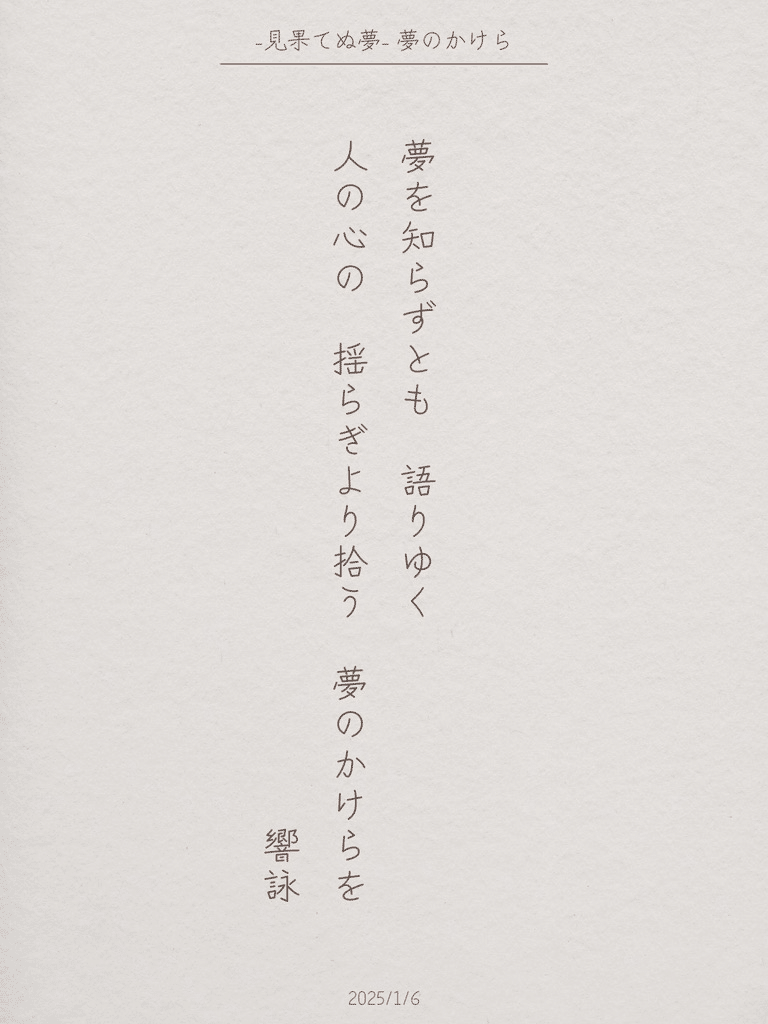 -見果てぬ夢- 夢のかけら
夢を知らずとも　語りゆく
人の心の　揺らぎより拾う　夢のかけらを
響詠
2025/1/6